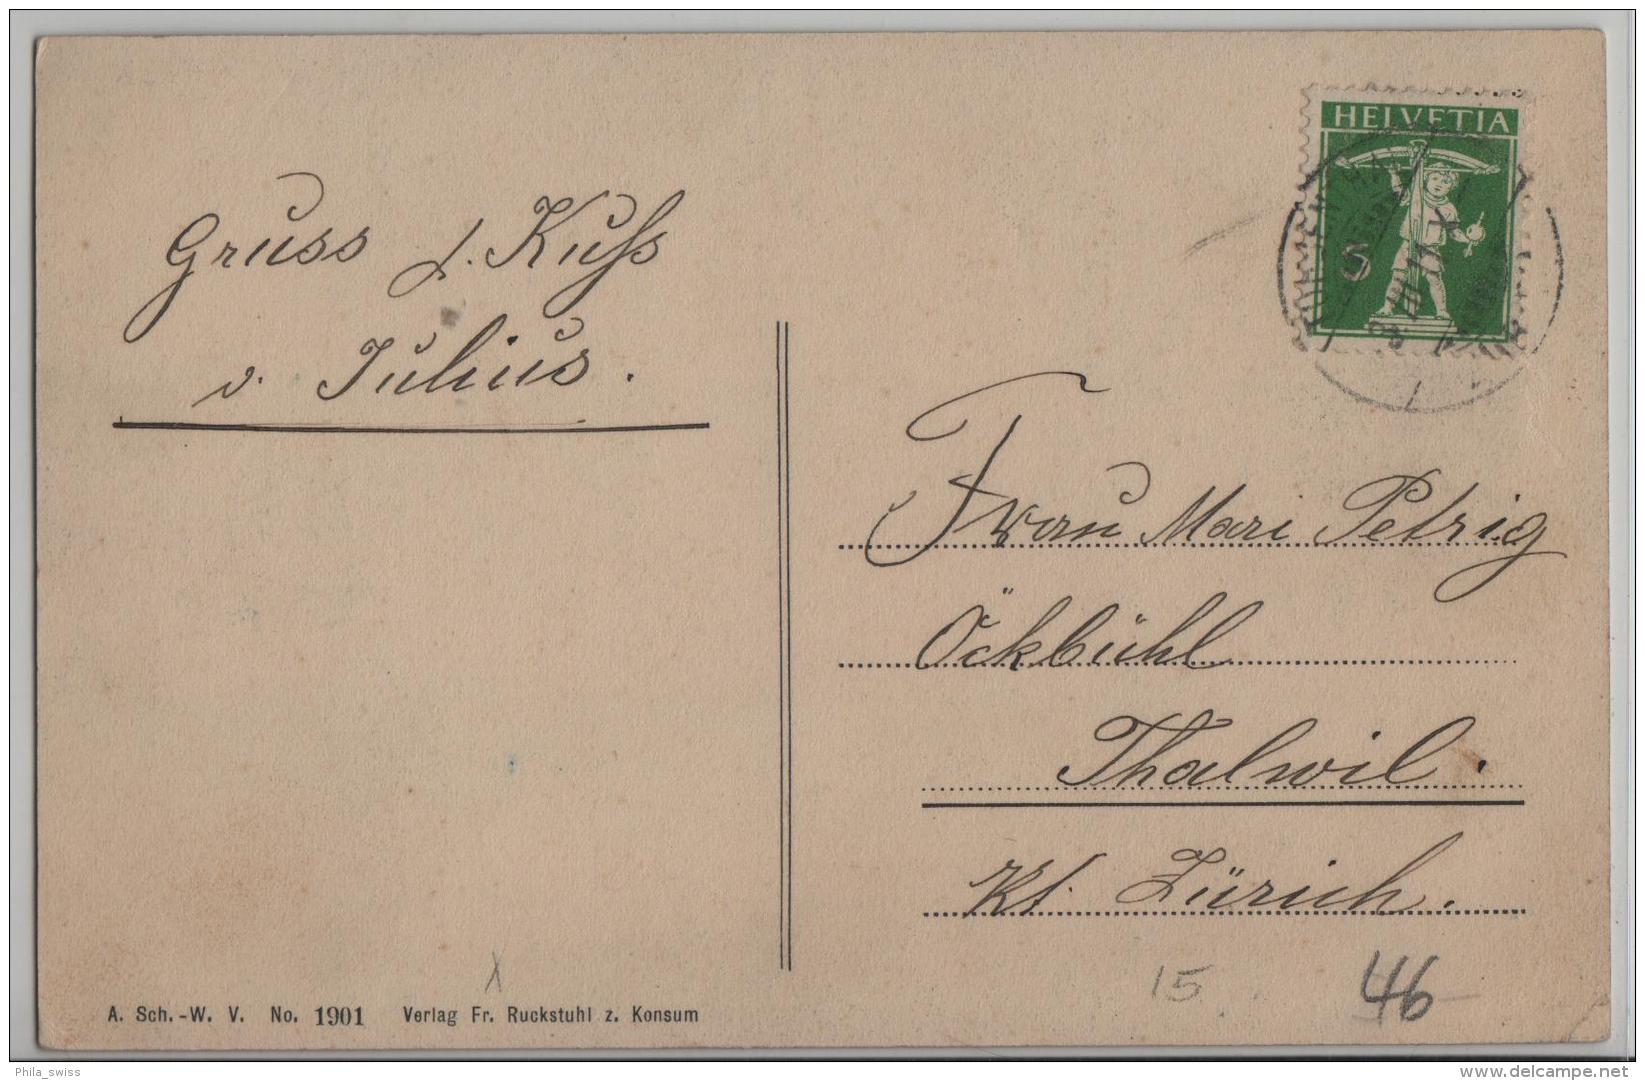 Gruss u. Kuss
v. Julius.
HELVETIA
5
Frau Mari Petrig
Öckbühl
Thalwil.
Kt. Zürich.
15
46
A. Sch.-W. V. No. 1901 Verlag Fr. Ruckstuhl z. Konsum
Phila_swiss
www.delcampe.net